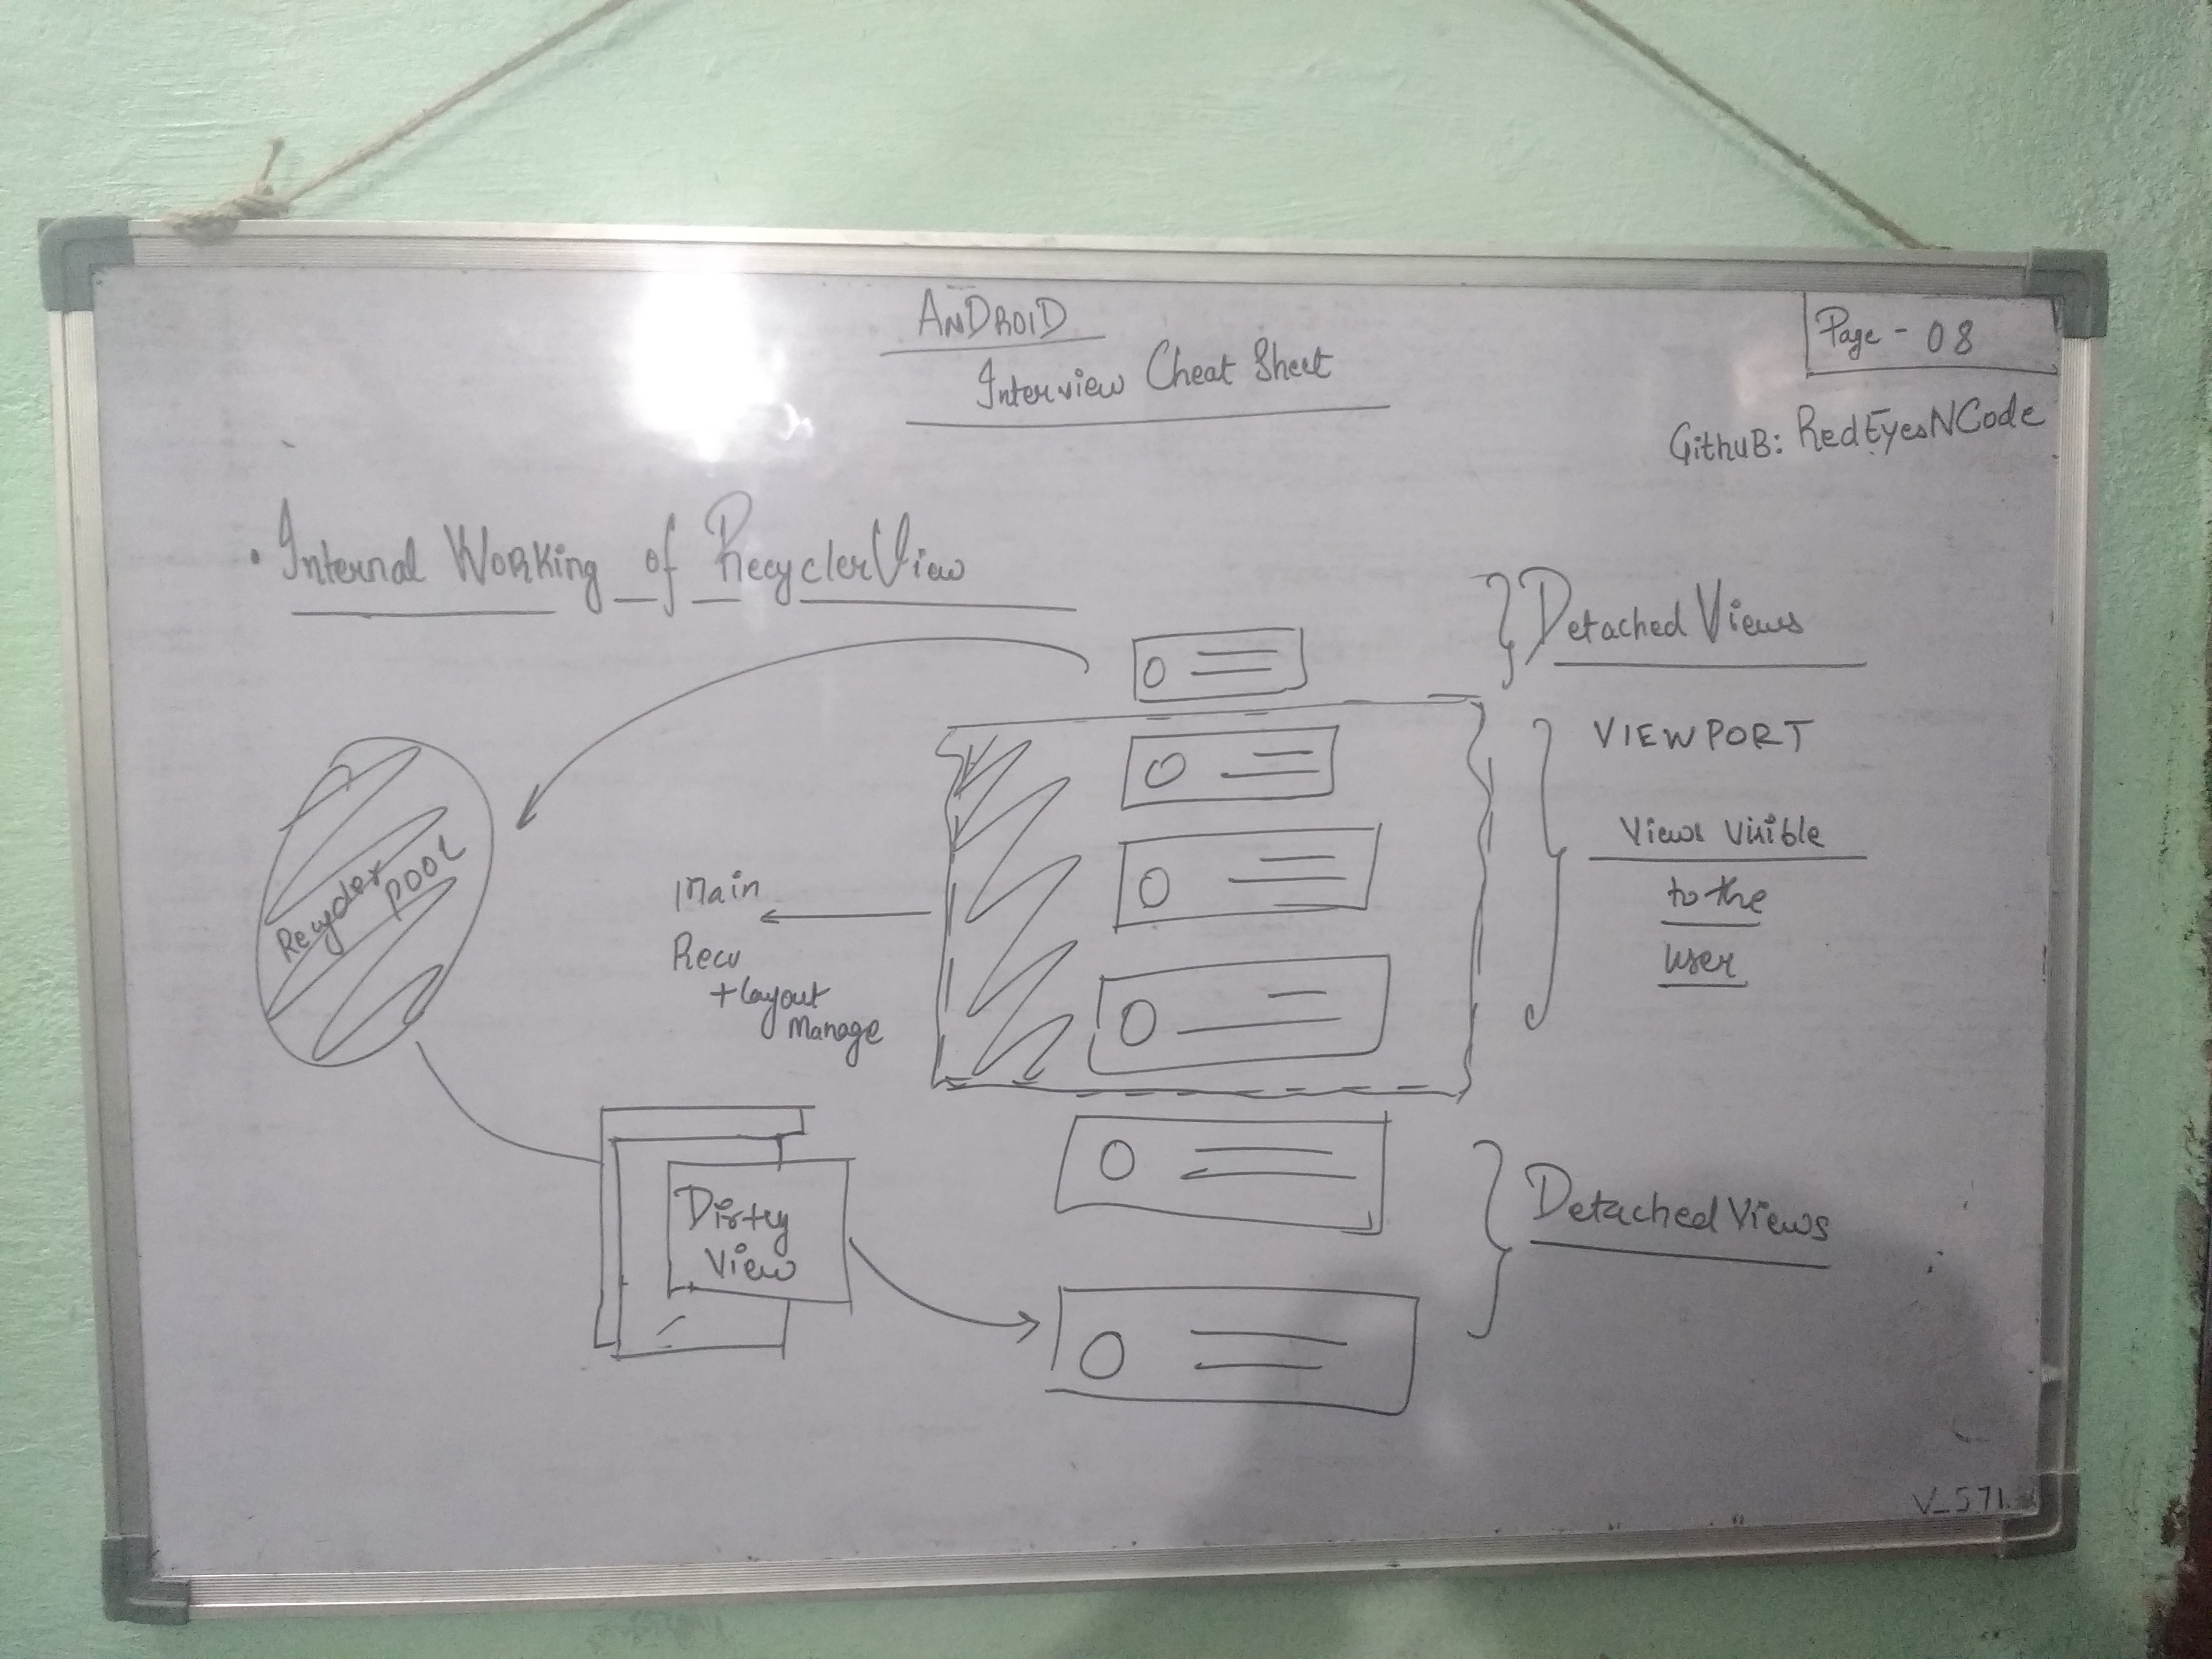 ANDROID
Interview Cheat Sheet
Page - 08
GithuB: RedEyesNCode
• Internal Working of RecyclerView
Detached Views
VIEWPORT
Views visible
to the
user
Recycler
POOL
Main
Recu
+ Layout
Manage
Dirty
View
Detached Views
V_571